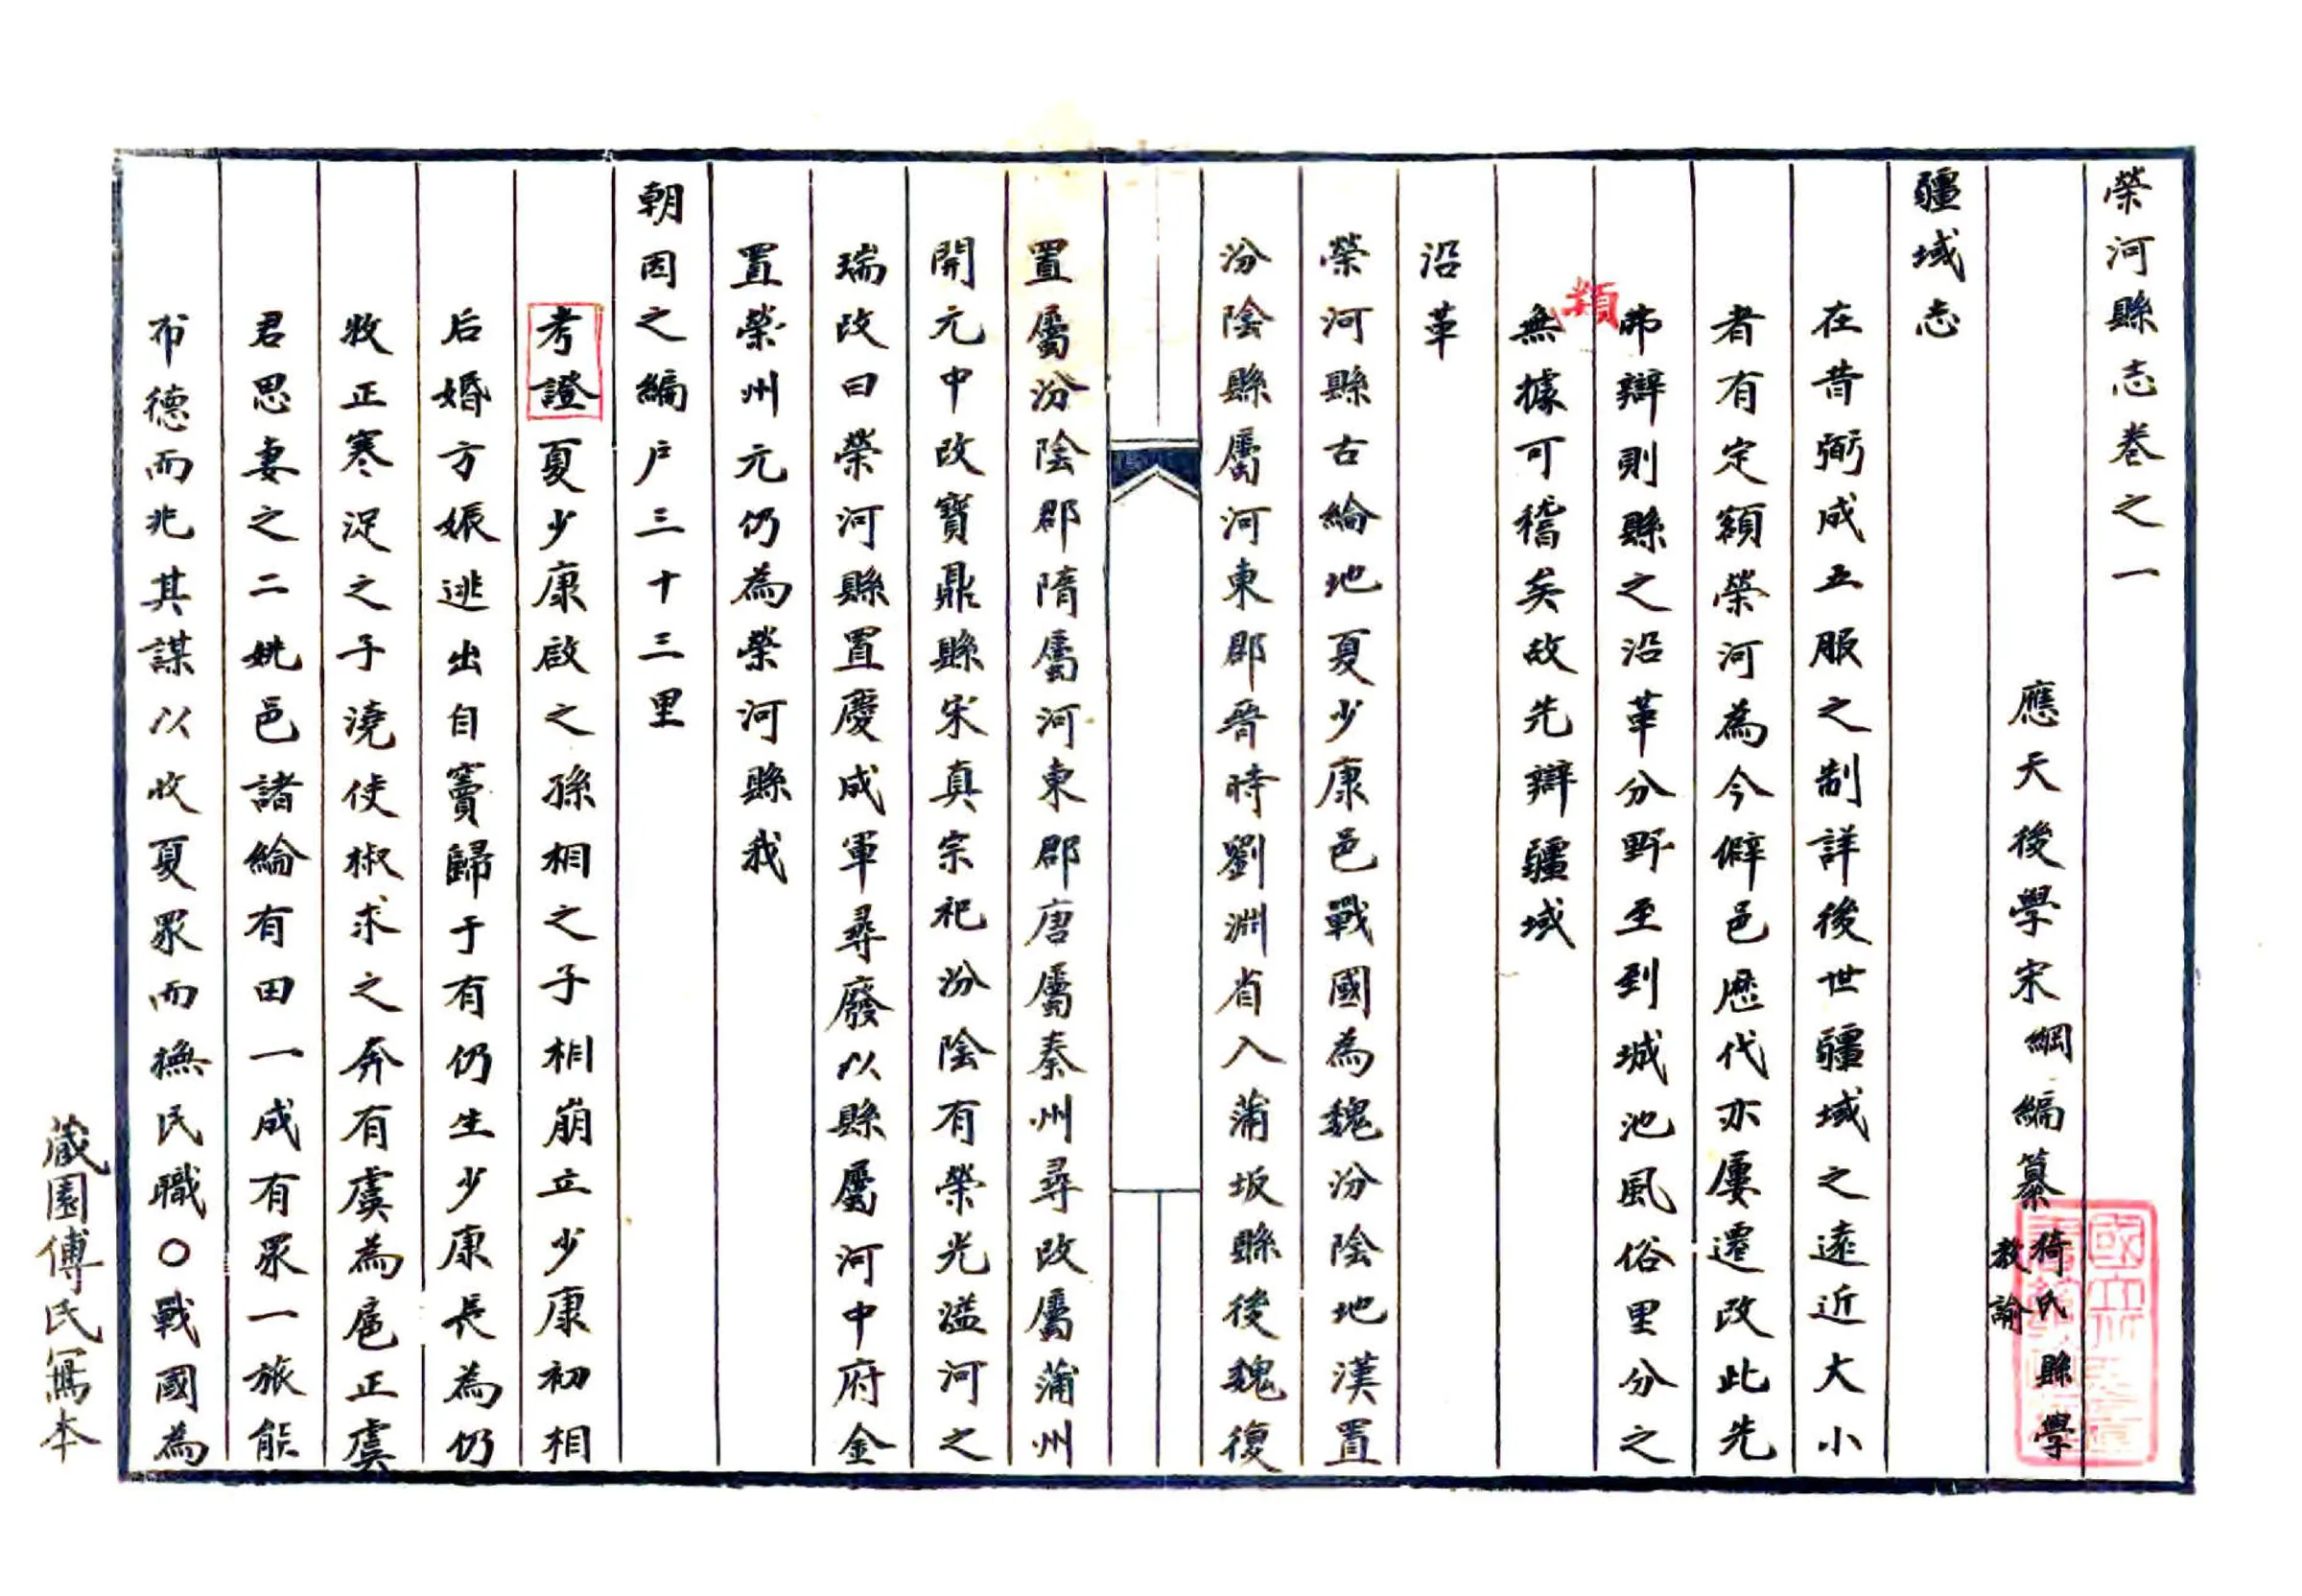 榮河縣志卷之一
應天後學宋綱編纂猗氏縣學教諭
疆域志
在昔弼成五服之制詳後世疆域之遠近大小
者有定額榮河為今僻邑歷代亦屢遷改此先
弗辯則縣之沿革分野至到城池風俗里分之
類
無據可稽矣故先辯疆域
沿革
榮河縣古綸地夏少康邑戰國為魏汾陰地漢置
汾陰縣屬河東郡晉時劉淵省入蒲坂縣後魏復
置屬汾陰郡隋屬河東郡唐屬秦州尋改屬蒲州
開元中改寶鼎縣宋真宗祀汾陰有榮光溢河之
瑞改曰榮河縣置慶成軍尋廢以縣屬河中府金
置榮州元仍為榮河縣我
朝因之編户三十三里
考證夏少康啟之孫相之子相崩立少康初相
后婚方娠逃出自竇歸于有仍生少康長為仍
牧正寒浞之子澆使椒求之奔有虞為庖正虞
君思妻之二姚邑諸綸有田一成有眾一旅能
布德而兆其謀以收夏眾而撫民職〇戰國為
藏園傅氏寫本